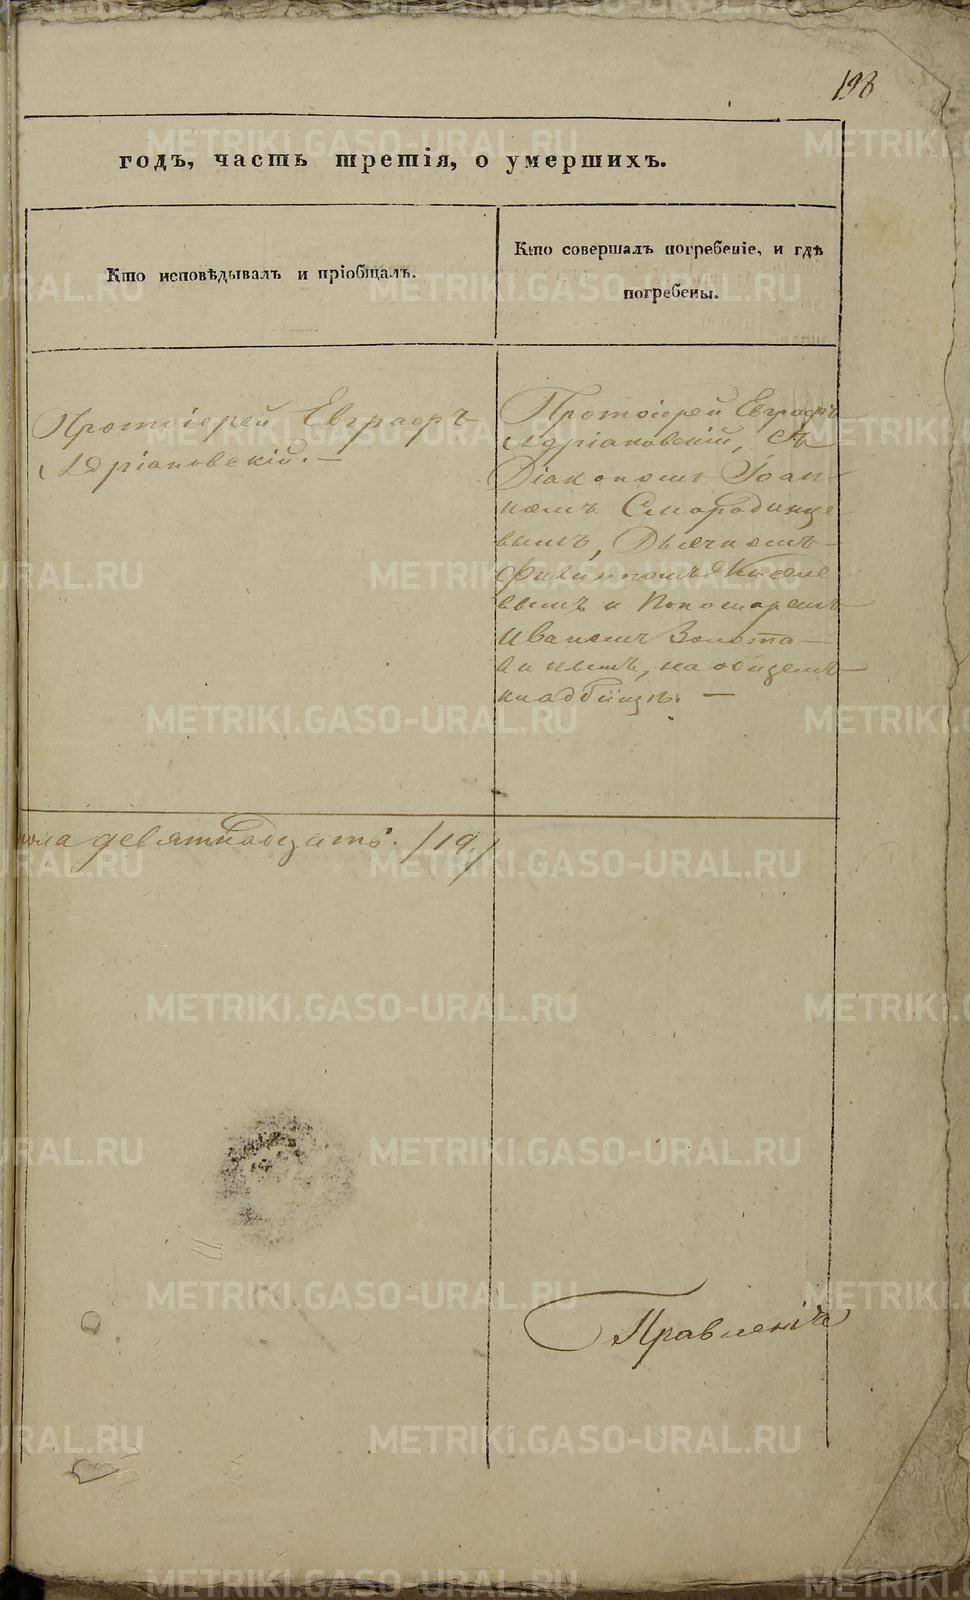 198
годъ, часть третія, о умершихъ.
Кто исповѣдывалъ и пріобщалъ.
Кто совершалъ погребеніе, и гдѣ
погребены.
Протоіерей Евграфъ
Адріановскій. —
Протоіерей Евграфъ
Адріановскій, съ
Діакономъ Іоан
номъ Смородинце
вымъ, Дьячкомъ
Филиппомъ Киселе
вымъ и Пономаремъ
Иваномъ Золота
винымъ, на общемъ
кладбищѣ. —
пола девятнадцать. /19./
Правленія
METRIKI.GASO-URAL.RU